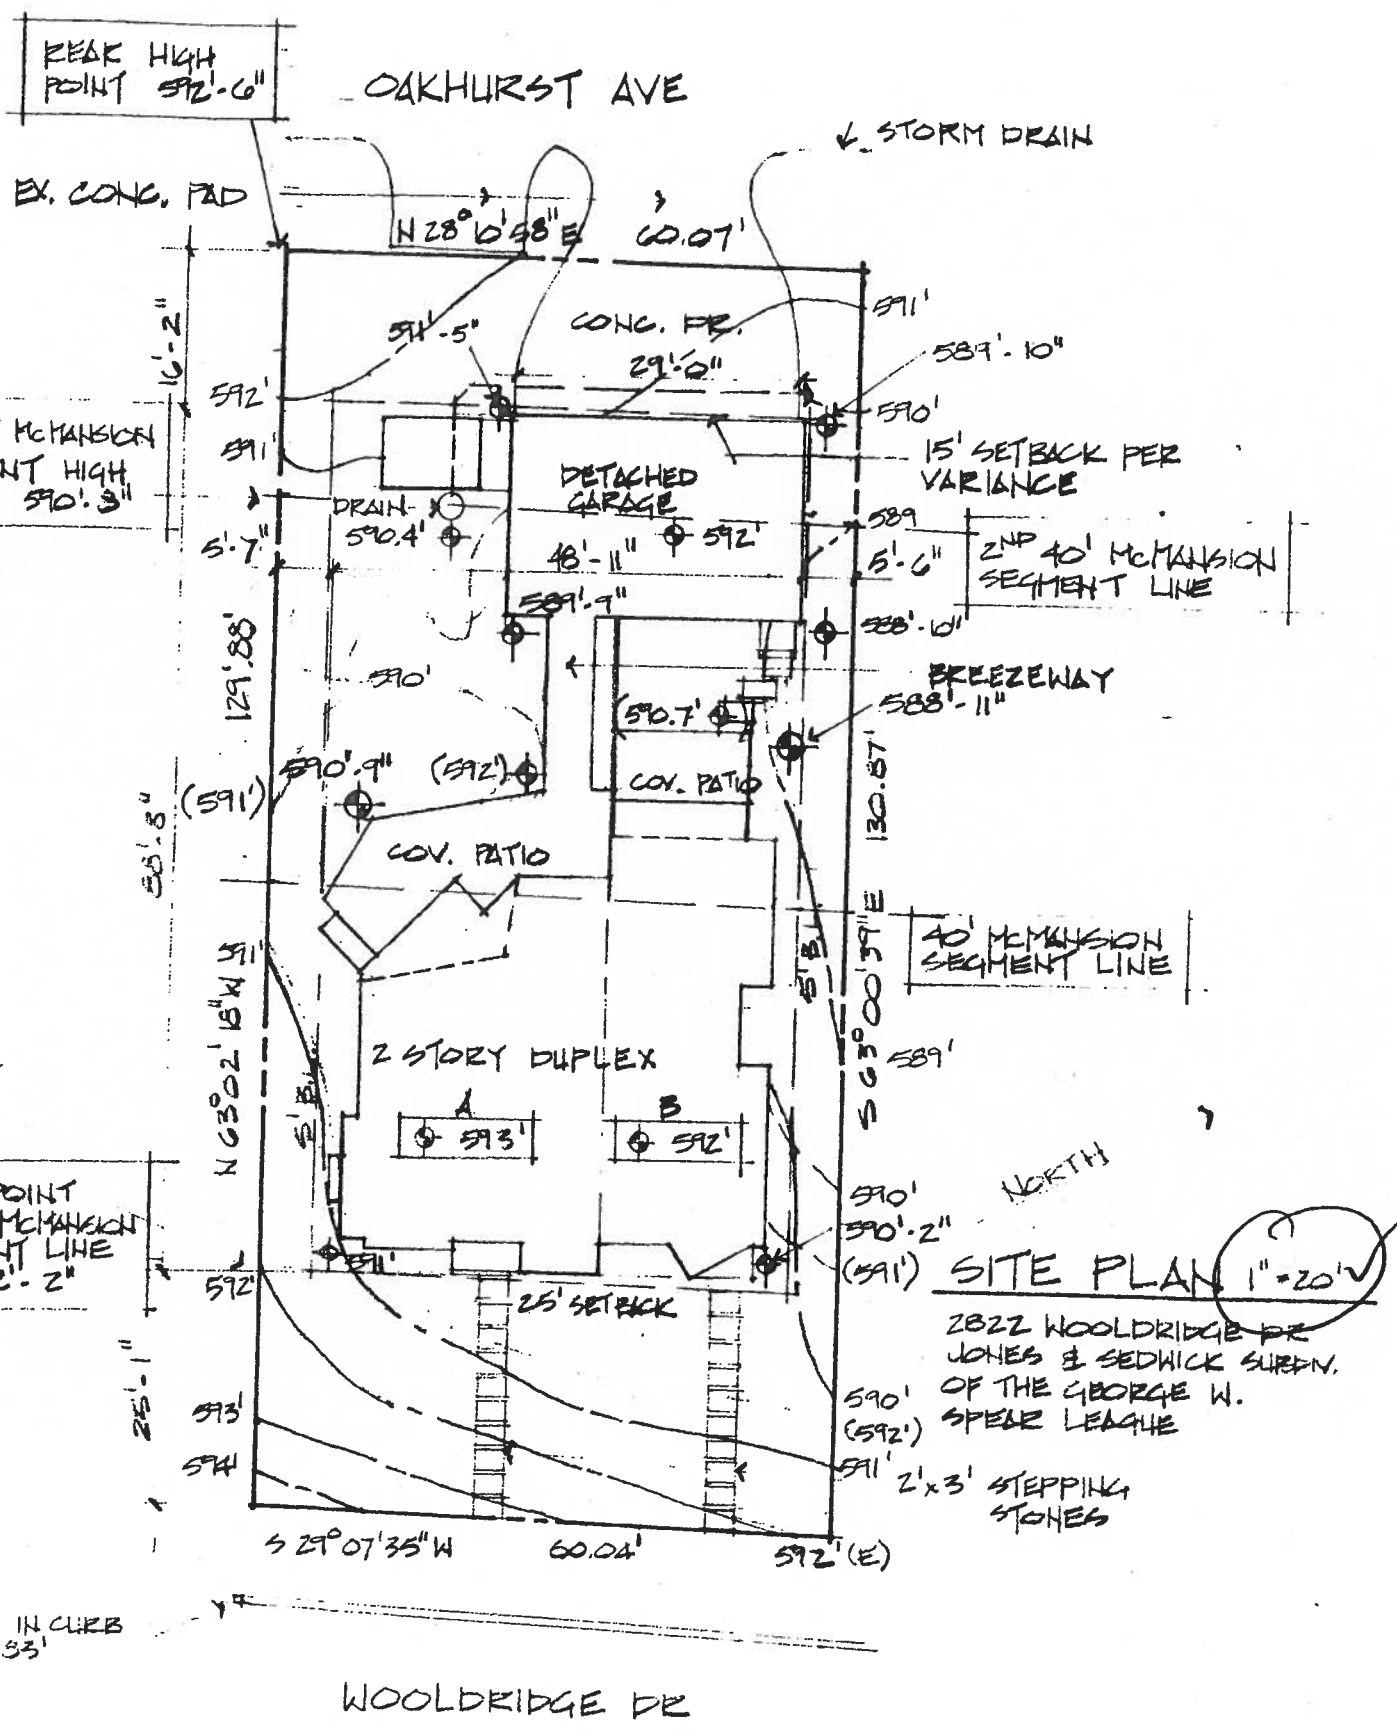 REAR HIGH
POINT 592'-6"
OAKHURST AVE
STORM DRAIN
EX. CONC. PAD
N 28° 10' 58" E
60.07'
16'-2"
591'-5"
CONC. DR.
591'
589'-10"
29'-0"
592'
590'
McMANSION
NT HIGH
590'-3"
591'
DETACHED
GARAGE
15' SETBACK PER
VARIANCE
DRAIN
590.4'
592'
589
2ND 40' McMANSION
SEGMENT LINE
5'-7"
48'-11"
5'-6"
589'-9"
588'-10"
129'.88'
590'
BREEZEWAY
588'-11"
(590.7')
590'-9"
(592')
(591')
COV. PATIO
130.87'
88'-8"
COV. PATIO
591'
5' B.
40' McMANSION
SEGMENT LINE
N 63° 02' 18" W
S 63° 00' 39" E
2 STORY DUPLEX
589'
5' B.
A
B
593'
592'
NORTH
POINT
McMANSION
NT LINE
2'-2"
590'
590'-2"
(591')
591'
592'
SITE PLAN 1"=20'
25' SETBACK
2822 WOOLDRIDGE DR
JONES & SEDWICK SUBDV.
OF THE GEORGE W.
SPEAR LEAGUE
25'-1"
590'
(592')
593'
594'
591'
2'x3' STEPPING
STONES
S 29° 07' 35" W
60.04'
592' (E)
IN CURB
WOOLDRIDGE DR